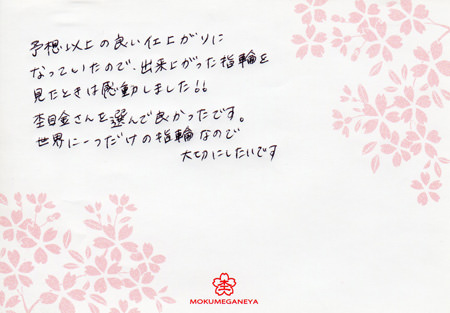 予想以上の良い仕上がりに
なっていたので、出来上がった指輪を
見たときは感動しました!!
杢目金さんを選んで良かったです。
世界に一つだけの指輪なので
大切にしたいです
杢
MOKUMEGANEYA